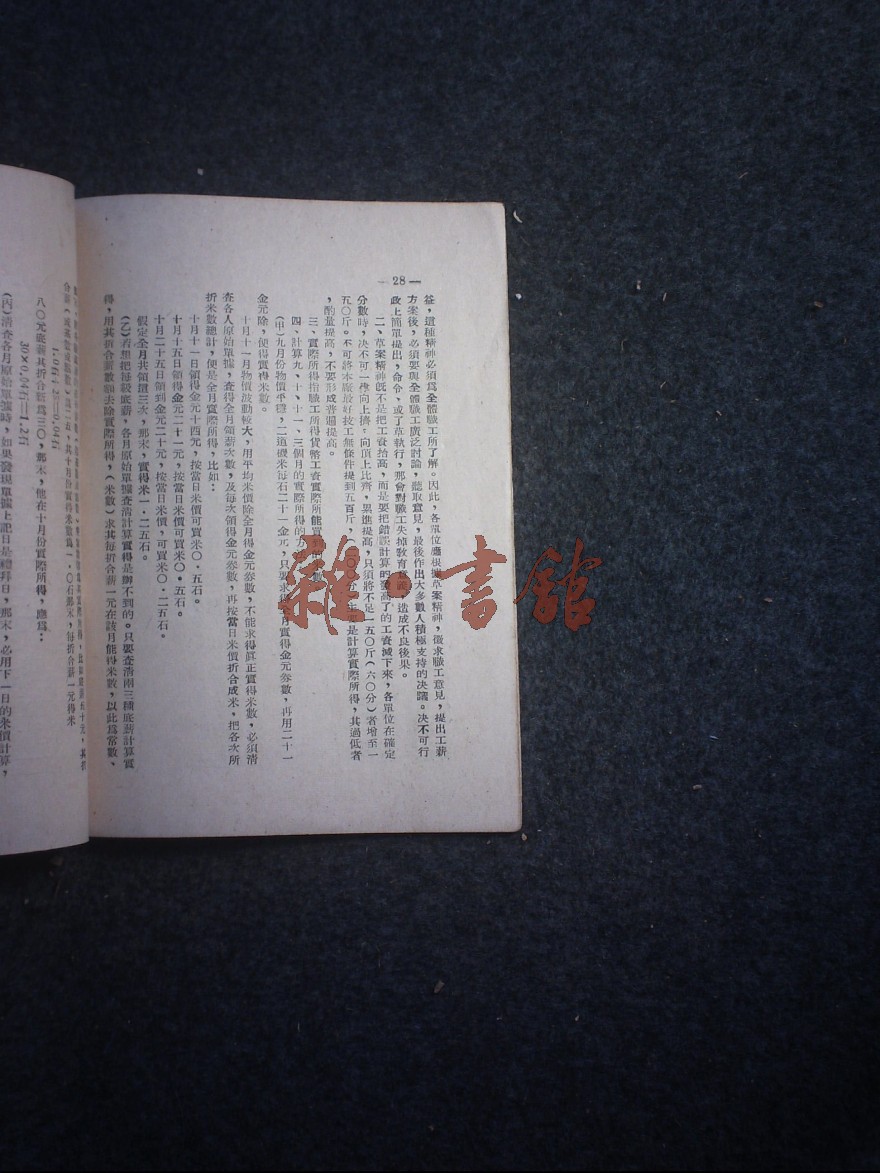 —28—
益，這種精神必須爲全體職工所了解。因此，各單位應根據草案精神，徵求職工意見，提出工薪
方案後，必須要與全體職工廣泛討論，聽取意見，最後作出大多數人積極支持的决議。决不可行
政上簡單提出，命令、或了草執行，那會對職工失掉敎育意義，造成不良後果。
二、草案精神既不是把工資抬高，而是要把錯誤計算的提高了的工資減下來，各單位在確定
分數時，决不可一律向上擠，向頂上比齊，累進提高，只須將不足一五〇斤（六〇分）者增至一
五〇斤。不可將本廠最好技工無條件提到五百斤，
是計算實際所得，其過低者
，酌量提高，不要形成普遍提高。
三、實際所得指職工所得貨幣工資實際所能買
四、計算九、十、十一、三個月的實際所得的方
(甲)九月份物價平穩，二道機米每石二十一金元，只要求得全月實得金元券數，再用二十一
金元除，便得實得米數。
十月十一月物價波動較大，用平均米價除全月得金元券數，不能求得眞正實得米數，必須清
查各人原始單據，查得全月領薪次數，及每次領得金元券數，再按當日米價折合成米，把各次所
折米數總計，便是全月實際所得，比如：
十月十一日領得金元十四元，按當日米價可買米〇・五石。
十月十五日領得金元二十一元，按當日米價可買米〇・五石。
十月二十五日領到金元二十元，按當日米價，可買米〇・二五石。
假定全月共領薪三次，那末，實得米一・二五石。
(乙)若想把每級底薪，各月原始單據查清計算實得是辦不到的。只要查清兩三種底薪計算實
得，用其折合薪數額去除實際所得，（米數）求其每折合薪一元在該月能得米數，以此爲常數、
其十月份實得米數爲一・〇石那末，每折合薪一元得米
八〇元底薪其折合薪爲三〇，那末，他在十月份實際所得，應爲：
30×0,04石—1,2石
(丙)清查各月原始單據時，如果發現單據上記日是禮拜日，那末，必用下一日的米價計算，
雜·書館